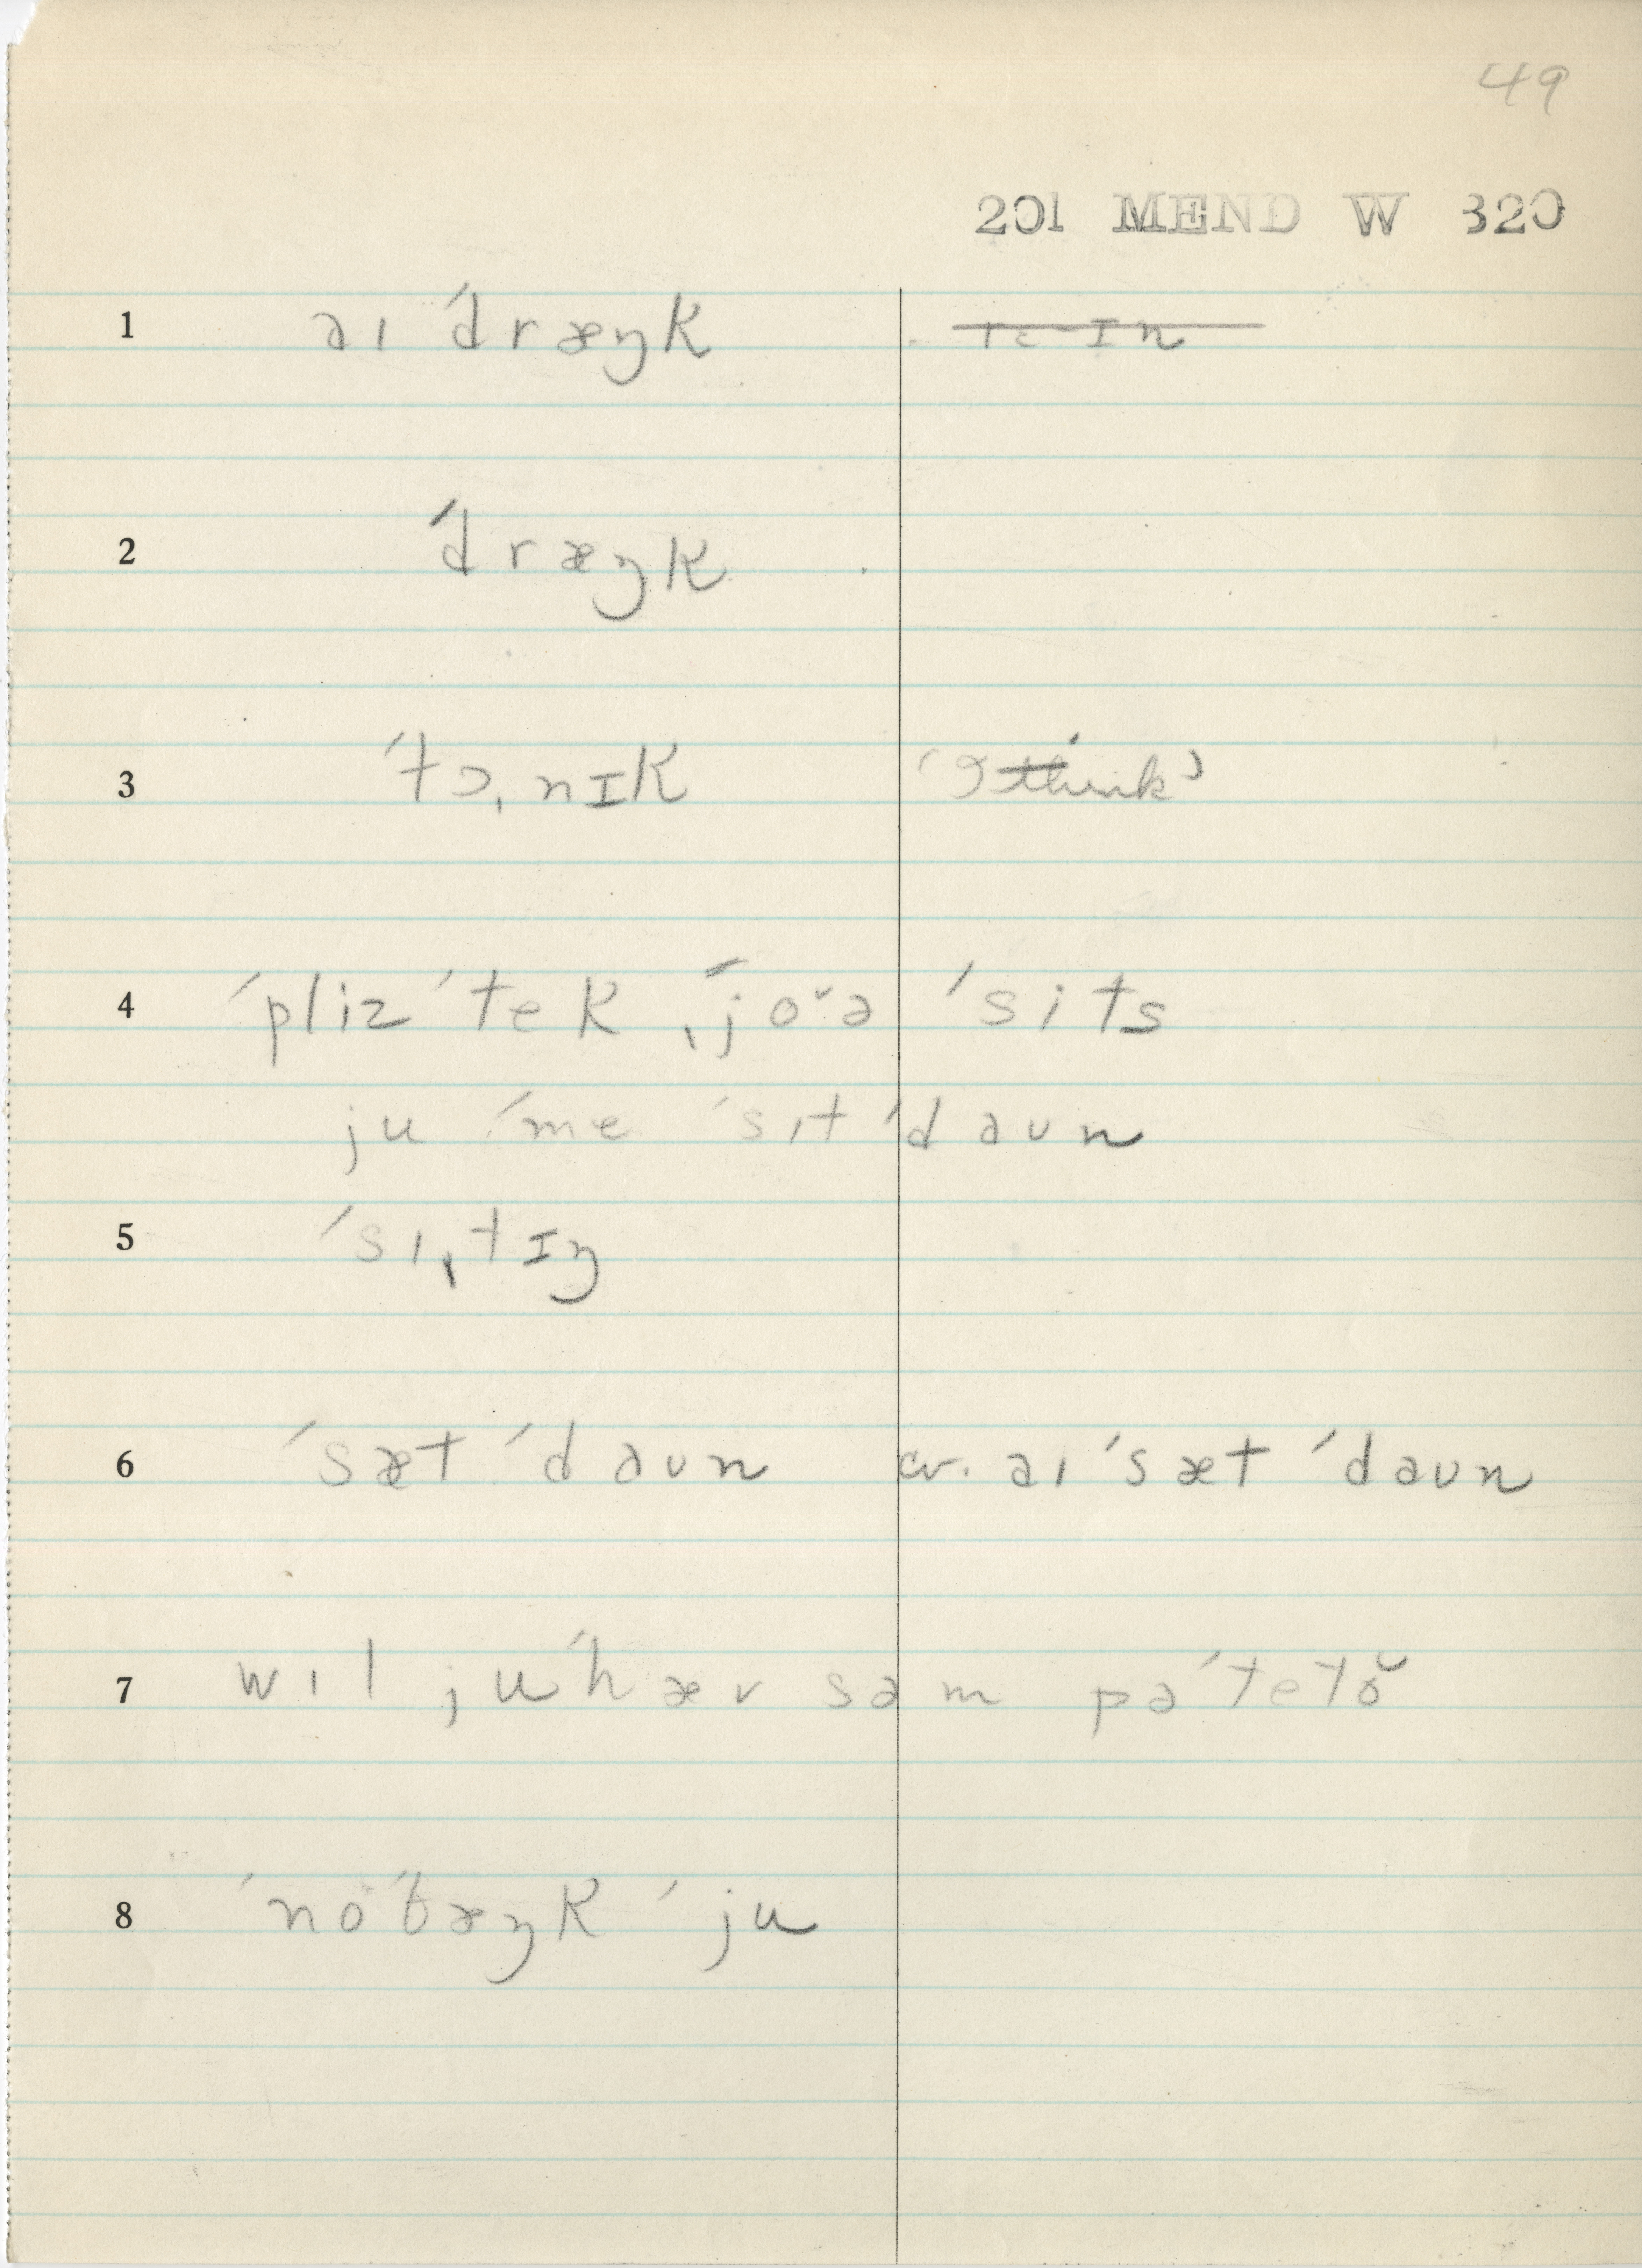 49
201 MEND W 320
1 aɪ ˈdræŋk
2 ˈdræŋk
3 ˈtɔˌnɪk (I think)
4 ˈpliz ˈtek ˌjoə ˈsits
ju ˈme ˈsɪt ˈdaʊn
5 ˈsɪˌtɪŋ
6 ˈsæt ˈdaʊn cv. aɪ ˈsæt ˈdaʊn
7 wɪl ju ˈhæv səm pəˈtetŏ
8 ˈno ˈtæŋk ˈju